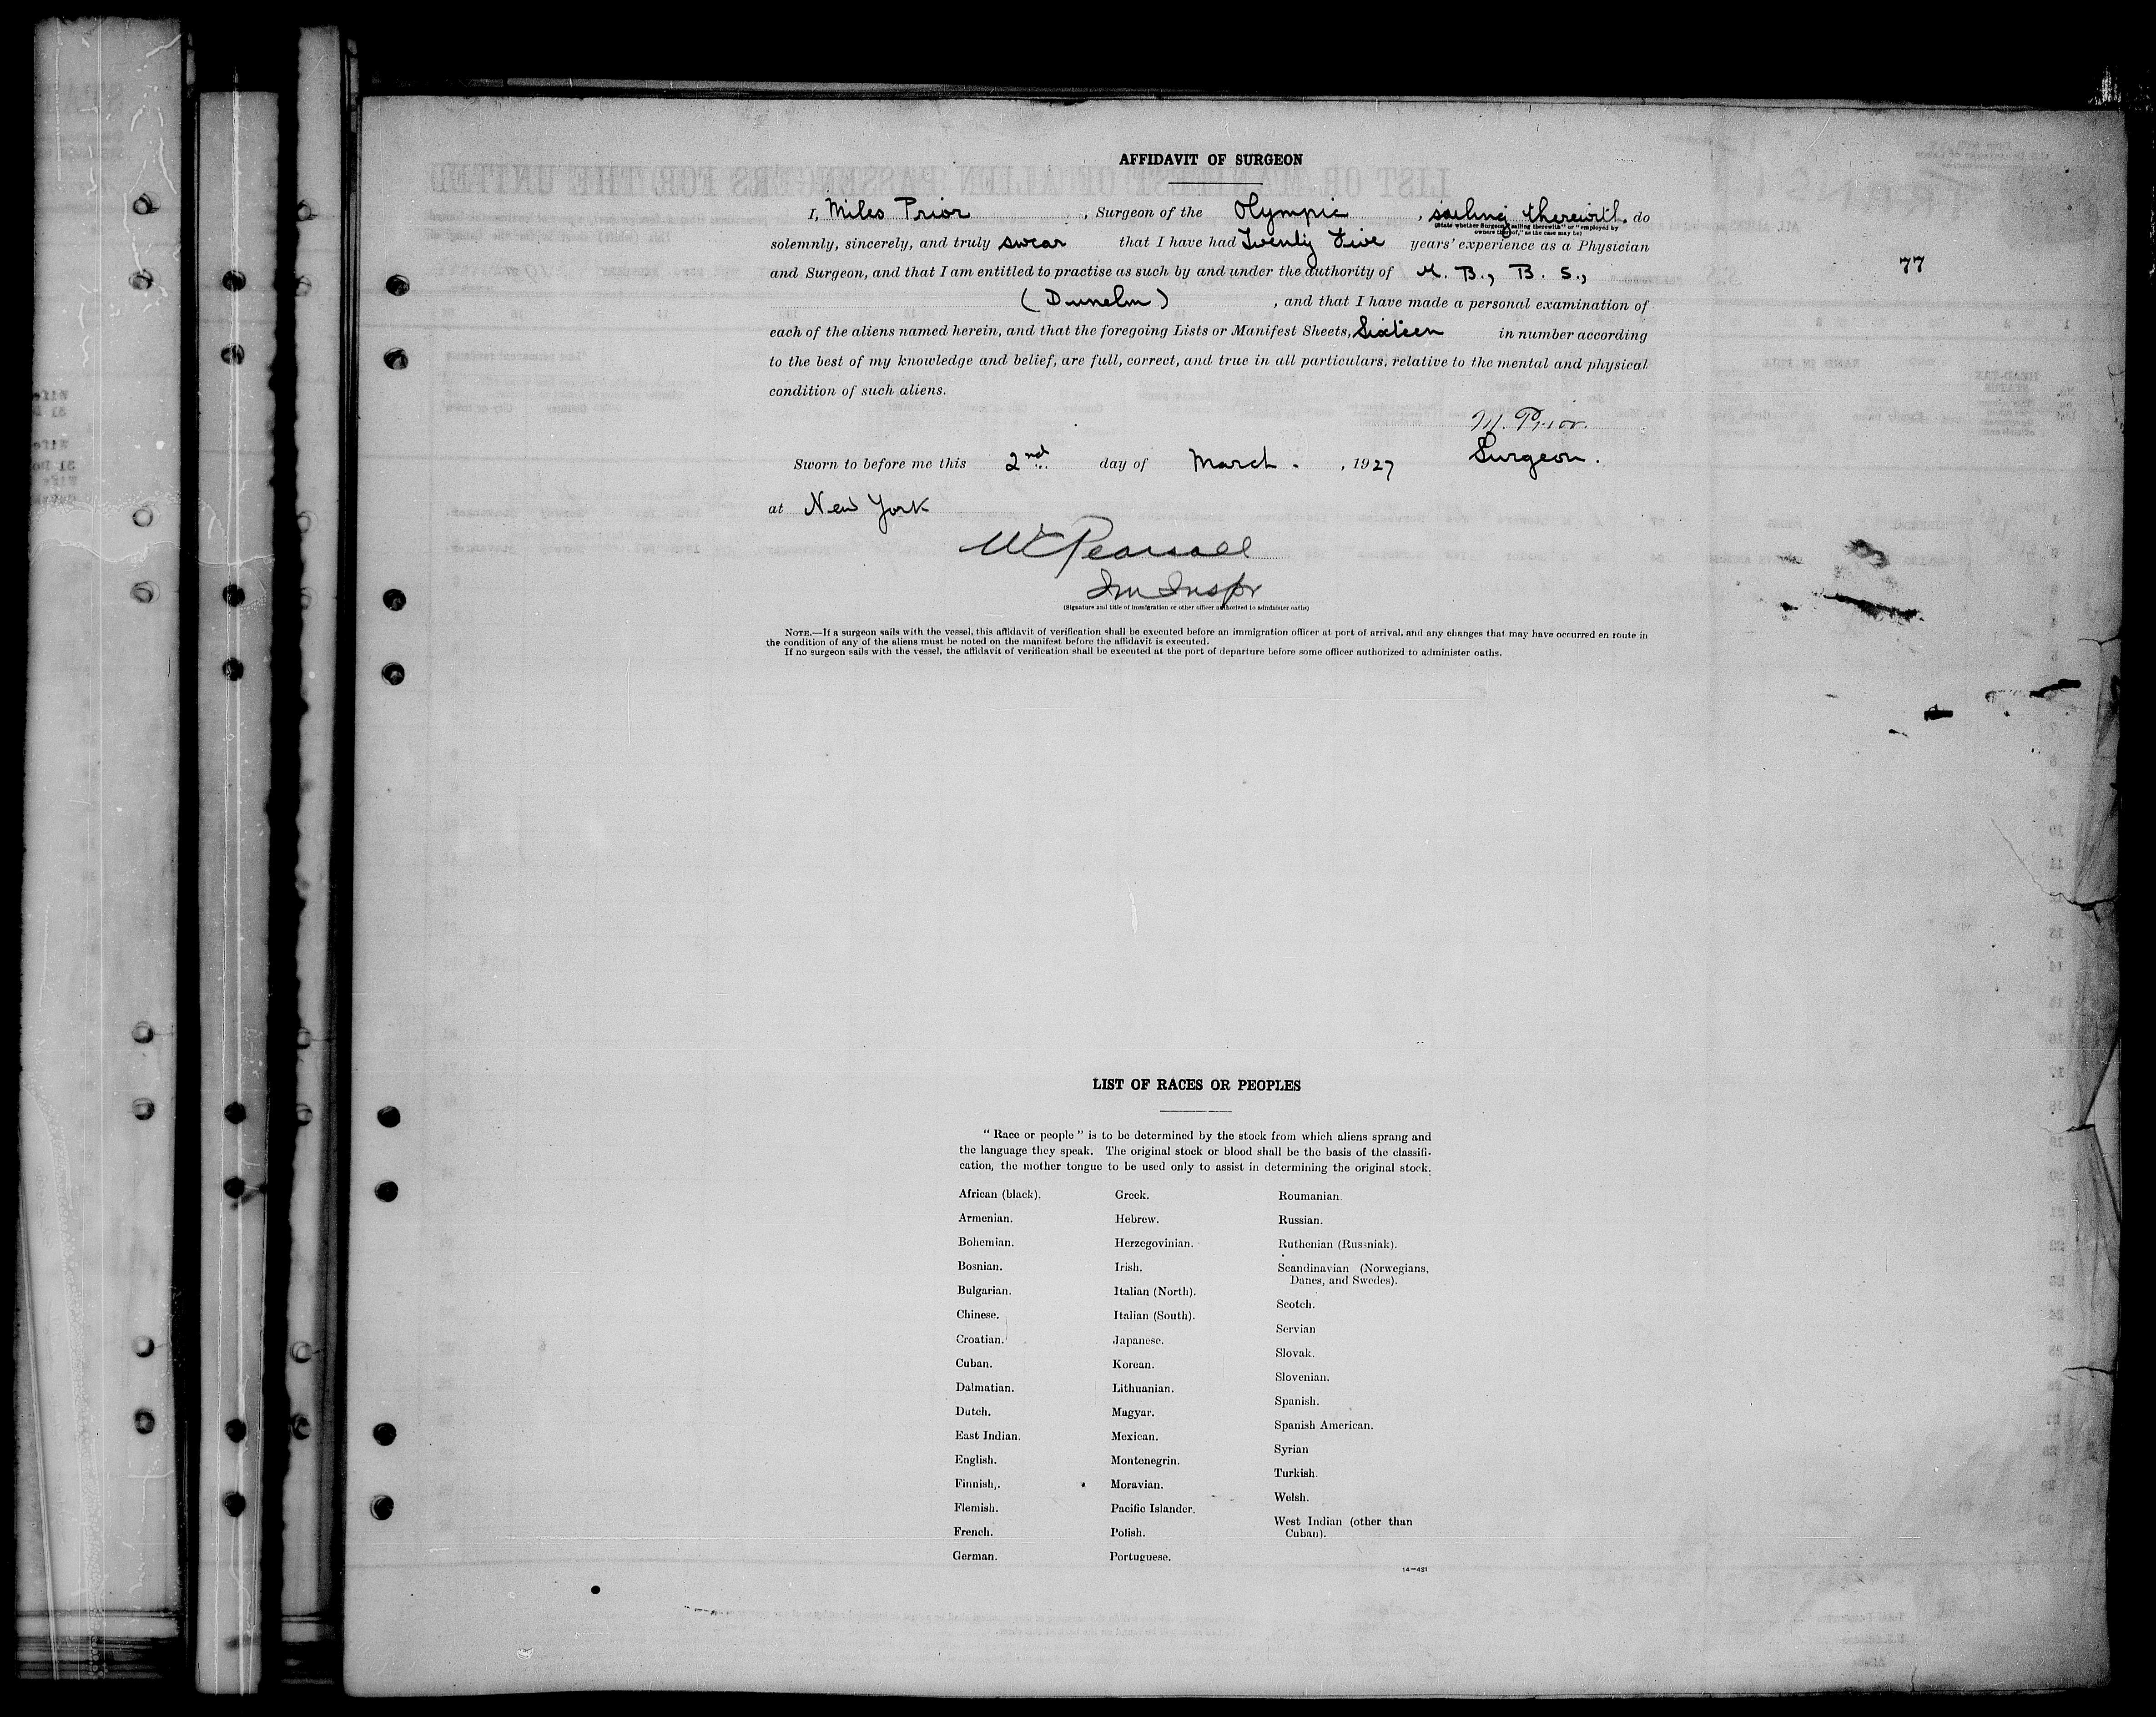 AFFIDAVIT OF SURGEON
I, Miles Prior, Surgeon of the Olympic, sailing therewith. do
(State whether Surgeon "sailing therewith" or "employed by
owners thereof," as the case may be)
solemnly, sincerely, and truly swear that I have had Twenty Five years' experience as a Physician
77
and Surgeon, and that I am entitled to practise as such by and under the authority of M. B., B. S.,
(Dunelm), and that I have made a personal examination of
each of the aliens named herein, and that the foregoing Lists or Manifest Sheets, Sixteen in number according
to the best of my knowledge and belief, are full, correct, and true in all particulars, relative to the mental and physical
condition of such aliens.
M. Prior.
Surgeon.
Sworn to before me this 2nd day of March. , 1927
at New York
Pearsall
Im Inspr
(Signature and title of immigration or other officer authorized to administer oaths)
NOTE.—If a surgeon sails with the vessel, this affidavit of verification shall be executed before an immigration officer at port of arrival, and any changes that may have occurred en route in
the condition of any of the aliens must be noted on the manifest before the affidavit is executed.
If no surgeon sails with the vessel, the affidavit of verification shall be executed at the port of departure before some officer authorized to administer oaths.
LIST OF RACES OR PEOPLES
"Race or people" is to be determined by the stock from which aliens sprang and
the language they speak. The original stock or blood shall be the basis of the classifi-
cation, the mother tongue to be used only to assist in determining the original stock.
African (black).
Armenian.
Bohemian.
Bosnian.
Bulgarian.
Chinese.
Croatian.
Cuban.
Dalmatian.
Dutch.
East Indian.
English.
Finnish.
Flemish.
French.
German.
Greek.
Hebrew.
Herzegovinian.
Irish.
Italian (North).
Italian (South).
Japanese.
Korean.
Lithuanian.
Magyar.
Mexican.
Montenegrin.
Moravian.
Pacific Islander.
Polish.
Portuguese.
Roumanian.
Russian.
Ruthenian (Russniak).
Scandinavian (Norwegians,
Danes, and Swedes).
Scotch.
Servian
Slovak.
Slovenian.
Spanish.
Spanish American.
Syrian
Turkish.
Welsh.
West Indian (other than
Cuban).
14—421